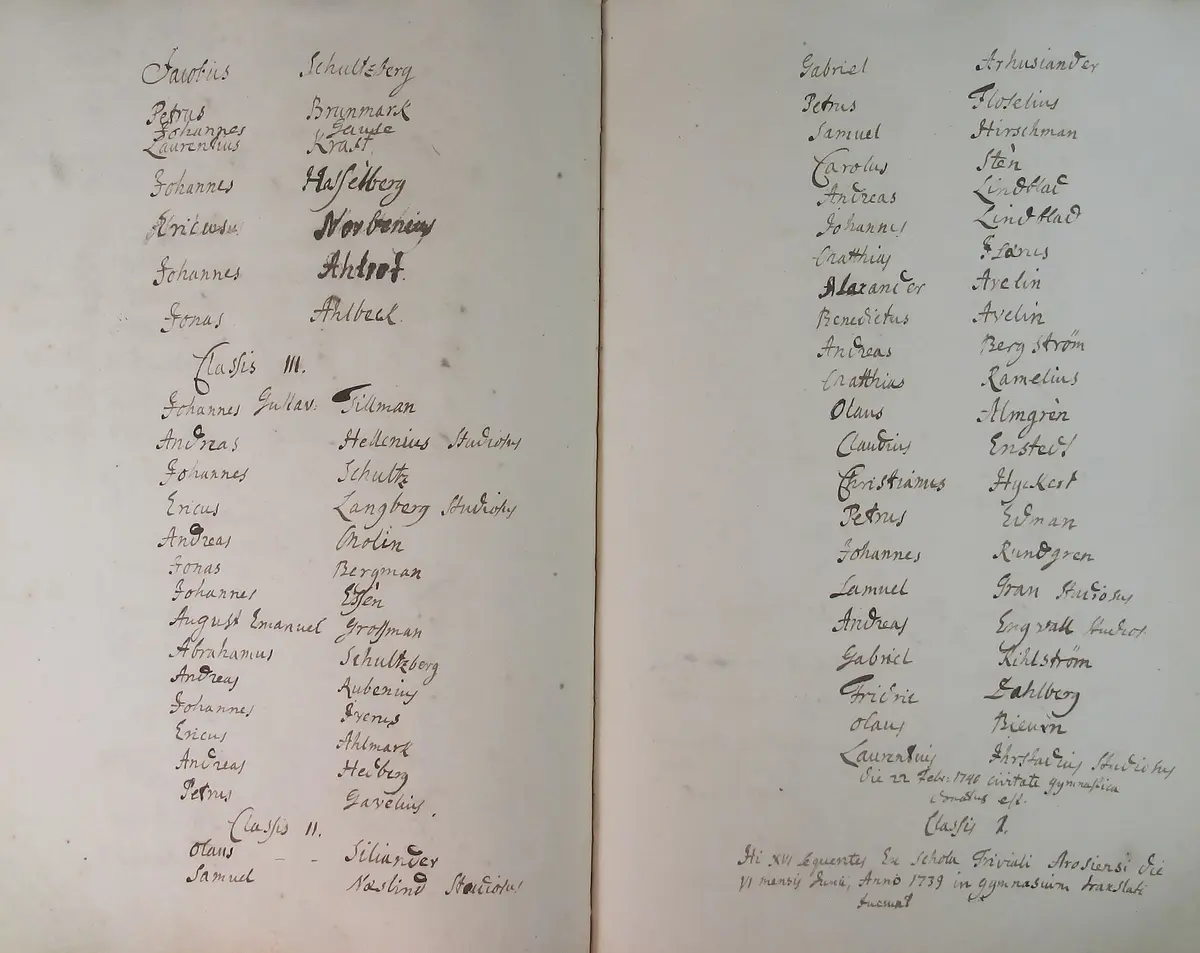 Jacobus Schultzberg
Petrus Brunmark
Johannes Gause
Laurentius Kraft
Johannes Hasselberg
Ericus Norbenius
Johannes Ahlrot.
Jonas Ahlbeck.
Classis III.
Johannes Gustav: Tillman
Andreas Hellenius Studiosus
Johannes Schultz
Ericus Langberg Studiosus
Andreas Molin
Jonas Bergman
Johannes Essén
August Emanuel Grossman
Abrahamus Schultzberg
Andreas Rubenius
Johannes Iverus
Ericus Ahlmark
Andreas Hedberg
Petrus Gavelius.
Classis II.
Olaus - - Siliander
Samuel Næslind Studiosus
Gabriel Arhusiander
Petrus Floselius
Samuel Hirschman
Carolus Stén
Andreas Lindblad
Johannes Lindblad
Matthias
Alexander Avelin
Benedictus Avelin
Andreas Bergström
Matthias Ramelius
Olaus Almgrén
Claudius Enstedt
Christianus Hyckert
Petrus Edman
Johannes Rundgren
Samuel Gran Studiosus
Andreas Engvall Studios
Gabriel Kihlström
Fridric Dahlberg
Olaus
Laurentius Ihrstadius Studiosus
die 22 Febr: 1740 civitate gymnastica
donatus est.
Classis I.
Hi XVI sequentes Ex Schola Triviali Arosiensi die
VI mensis Junii, Anno 1739 in gymnasium translati
fuerunt